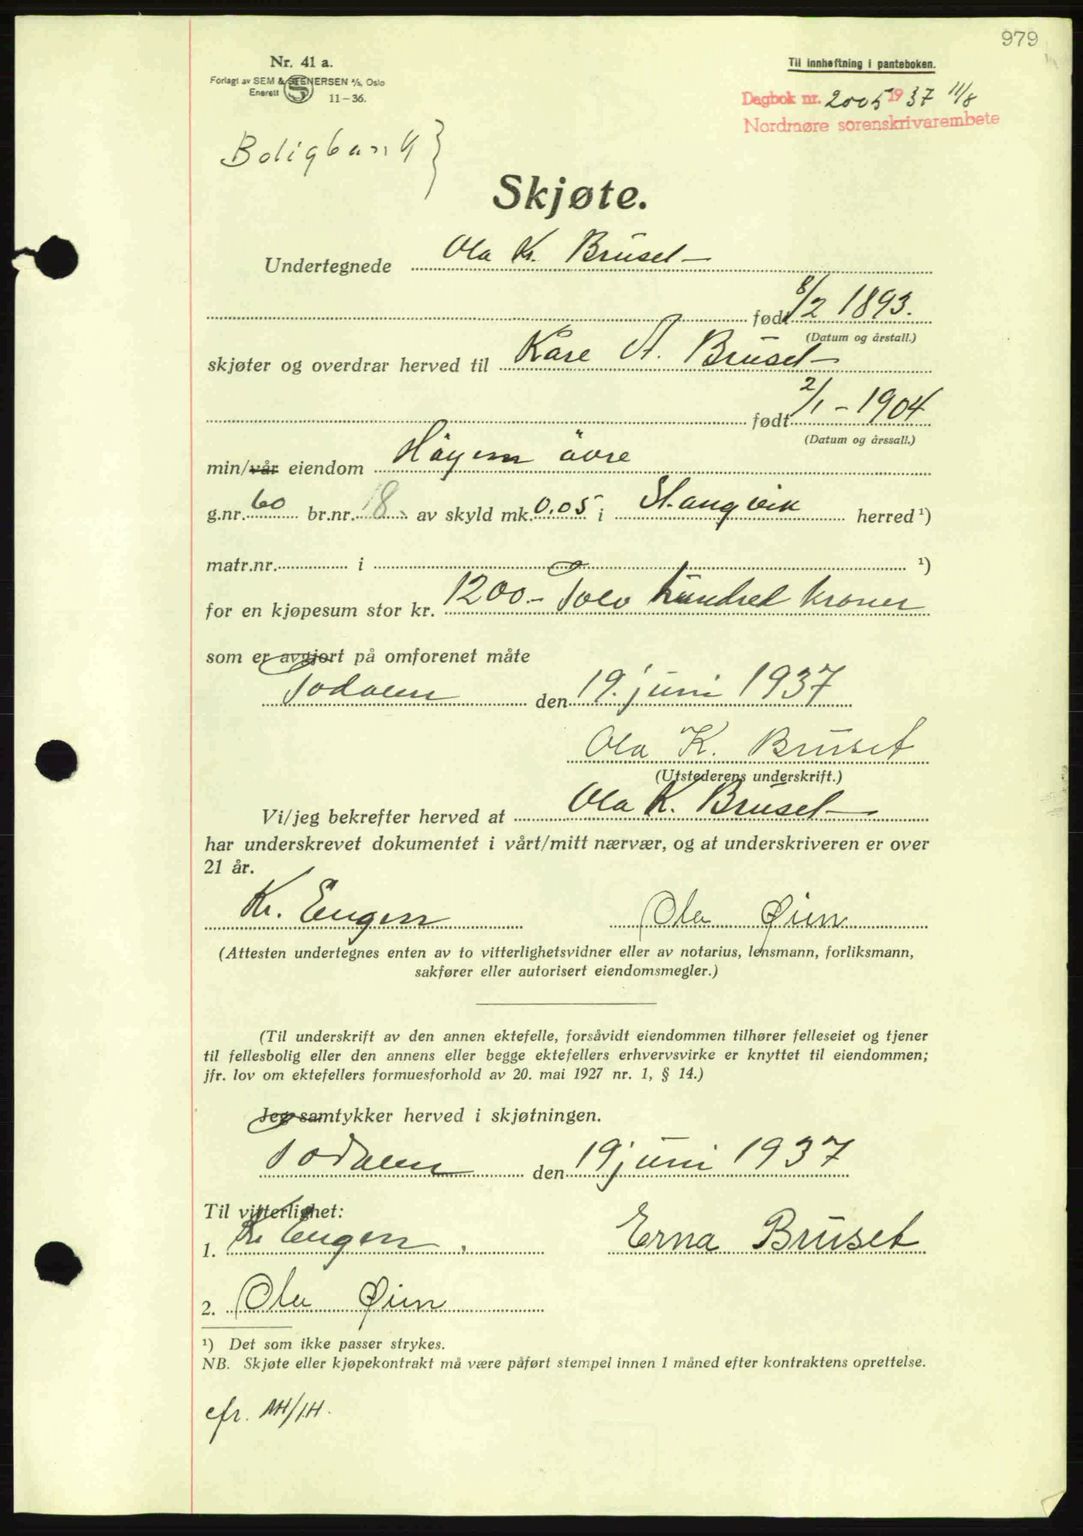 979
Nr. 41 a.
Forlagt av SEM & STENERSEN A/S, Oslo
Enerett 11-36.
Til innheftning i panteboken.
Dagbok nr. 2005 1937 11/8
Nordmøre sorenskrivarembete
Boligbank }
Skjøte.
Undertegnede Ola K. Bruset
født 8/2 1893.
(Datum og årstall.)
skjøter og overdrar herved til Kåre A. Bruset
født 2/1 - 1904
(Datum og årssall.)
min/vår eiendom Høyem övre
g.nr. 60 br.nr. 18 av skyld mk. 0.05 i Stangvik herred ¹)
matr.nr. i ¹)
for en kjøpesum stor kr. 1200 - Tolv hundred kroner
som er avgjort på omforenet måte
Todalen den 19. juni 1937
Ola K. Bruset
(Utstederens underskrift.)
Vi/jeg bekrefter herved at Ola K. Bruset
har underskrevet dokumentet i vårt/mitt nærvær, og at underskriveren er over
21 år.
Kr. Engen Ola Øien
(Attesten undertegnes enten av to vitterlighetsvidner eller av notarius, lensmann, forliksmann,
sakfører eller autorisert eiendomsmegler.)
(Til underskrift av den annen ektefelle, forsåvidt eiendommen tilhører felleseiet og tjener
til fellesbolig eller den annens eller begge ektefellers erhvervsvirke er knyttet til eiendommen;
jfr. lov om ektefellers formuesforhold av 20. mai 1927 nr. 1, § 14.)
Jeg samtykker herved i skjøtningen.
Todalen den 19 juni 1937
Til vitterlighet:
1. Kr. Engen Erna Bruset
2. Ola Øien
¹) Det som ikke passer strykes.
NB. Skjøte eller kjøpekontrakt må være påført stempel innen 1 måned efter kontraktens oprettelse.
cfr.